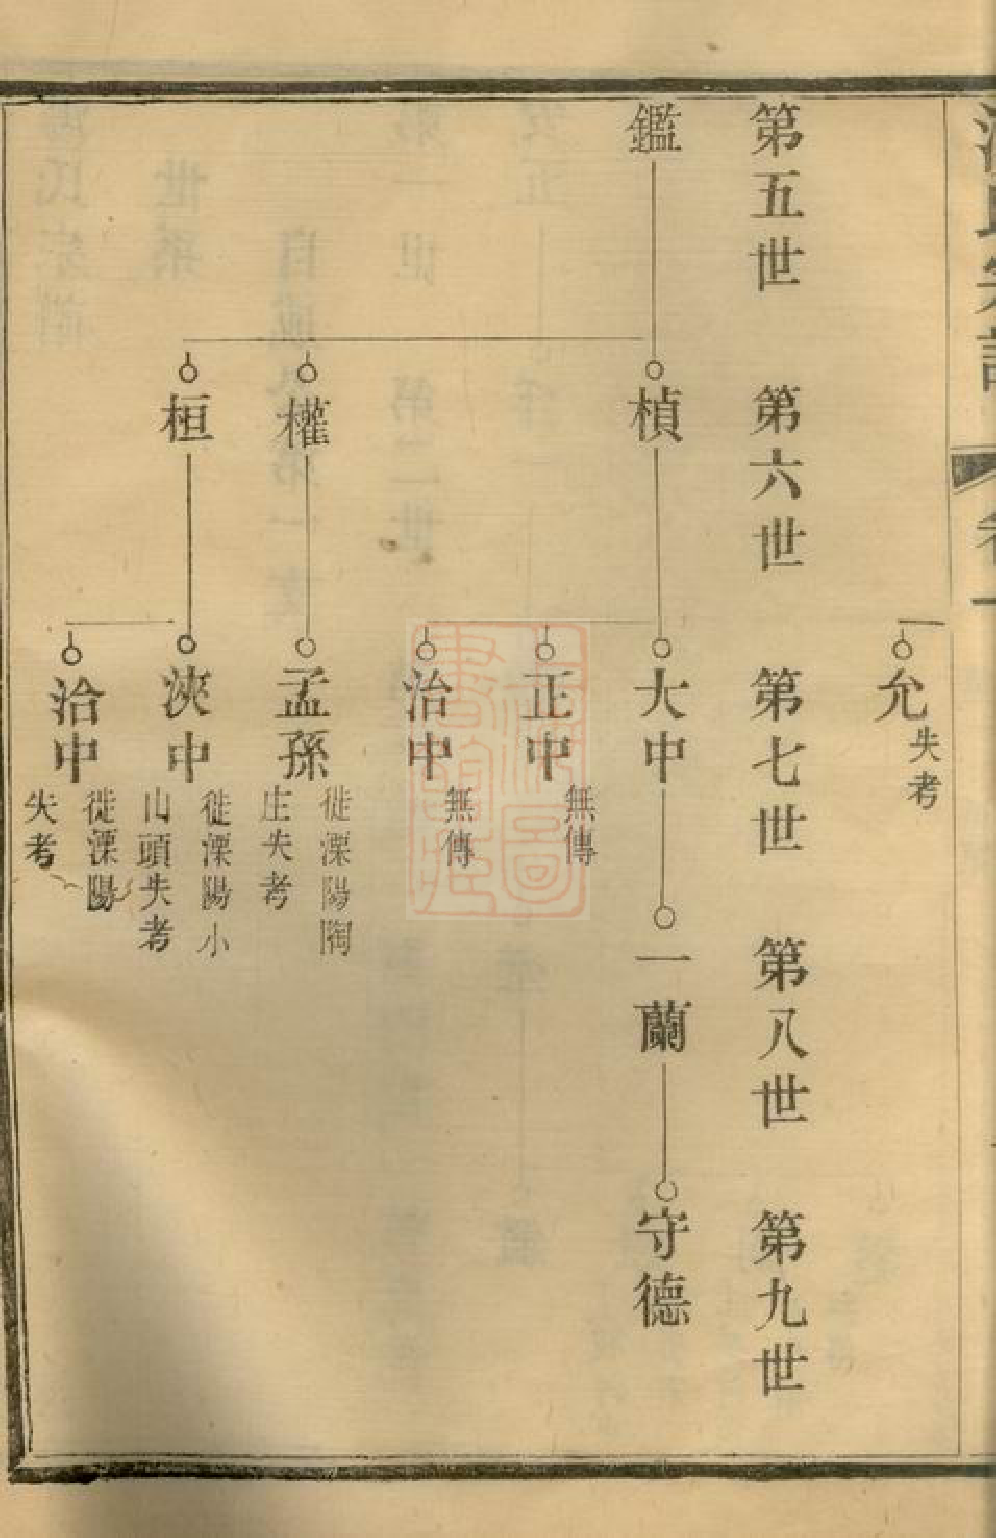 允
失考
第五世
第六世
第七世
第八世
第九世
鑑
楨
大中
一蘭
守德
正中
無傳
治中
無傳
權
孟孫
徙溧陽陶
庄失考
桓
浹中
徙溧陽小
山頭失考
洽中
徙溧陽
失考